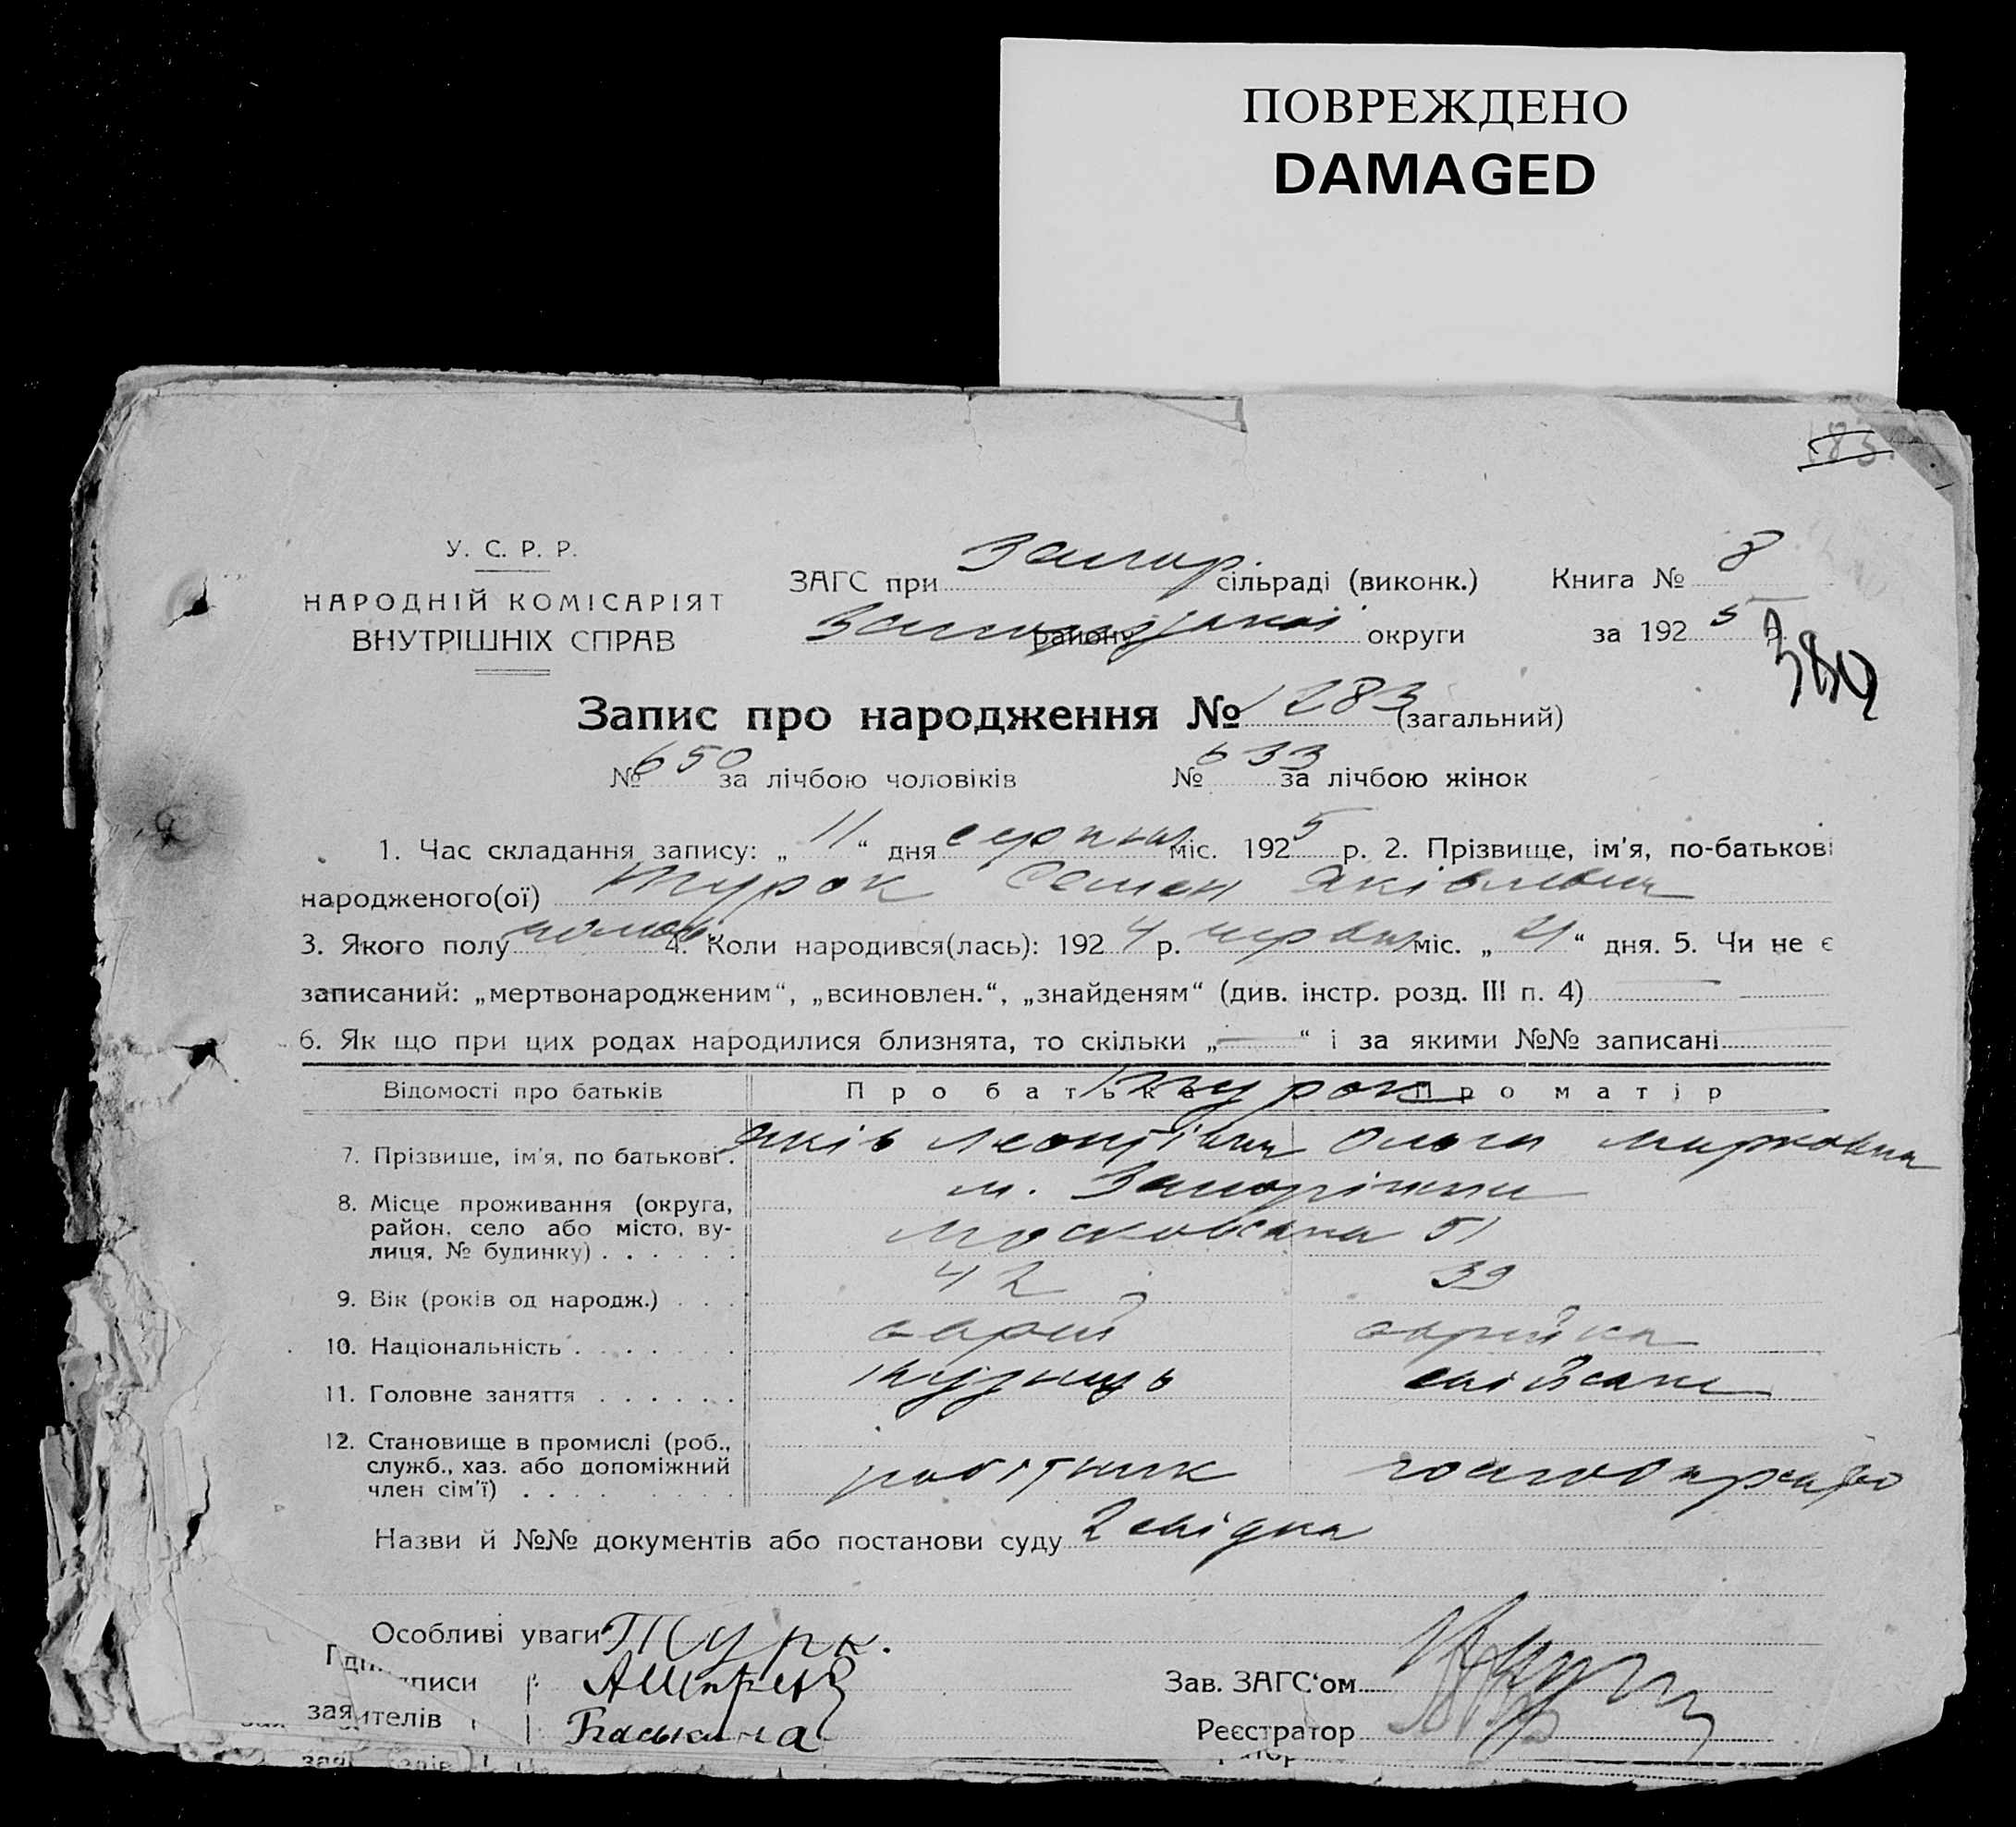 ПОВРЕЖДЕНО
DAMAGED
183.
У. С. Р. Р.
НАРОДНІЙ КОМІСАРІЯТ
ВНУТРІШНІХ СПРАВ
ЗАГС при Запор. сільраді (виконк.) Книга № 8
району округи за 1925 р.
380
Запис про народження № 1283 (загальний)
№ 650 за лічбою чоловіків № 633 за лічбою жінок
1. Час складання запису: „11“ дня серпня міс. 1925 р. 2. Прізвище, ім'я, по-батькові
народженого(ої) Турок Семен Яківлевич
3. Якого полу чолов. 4. Коли народився(лась): 1924 р. червня міс. „21“ дня. 5. Чи не є
записаний: „мертвонародженим“, „всиновлен.“, „знайденям“ (див. інстр. розд. III п. 4)
6. Як що при цих родах народилися близнята, то скільки „—“ і за якими №№ записані
Відомості про батьків Про батька Про матір
Турок
7. Прізвише, ім'я, по батькові . Яків Леонтієвич Ольга Марковна
8. Місце проживання (округа, район, село або місто, вулиця, № будинку) м. Запоріжжя
Московська 51
9. Вік (років од народж.) 42 39
10. Національність еврей еврейка
11. Головне заняття Кузнець
12. Становище в промислі (роб., служб., хаз. або допоміжний член сім'ї) робітник
Назви й №№ документів або постанови суду 2 свідка
Особливі уваги Турк.
писи
заявителів Баськина
Зав. ЗАГС'ом
Реєстратор